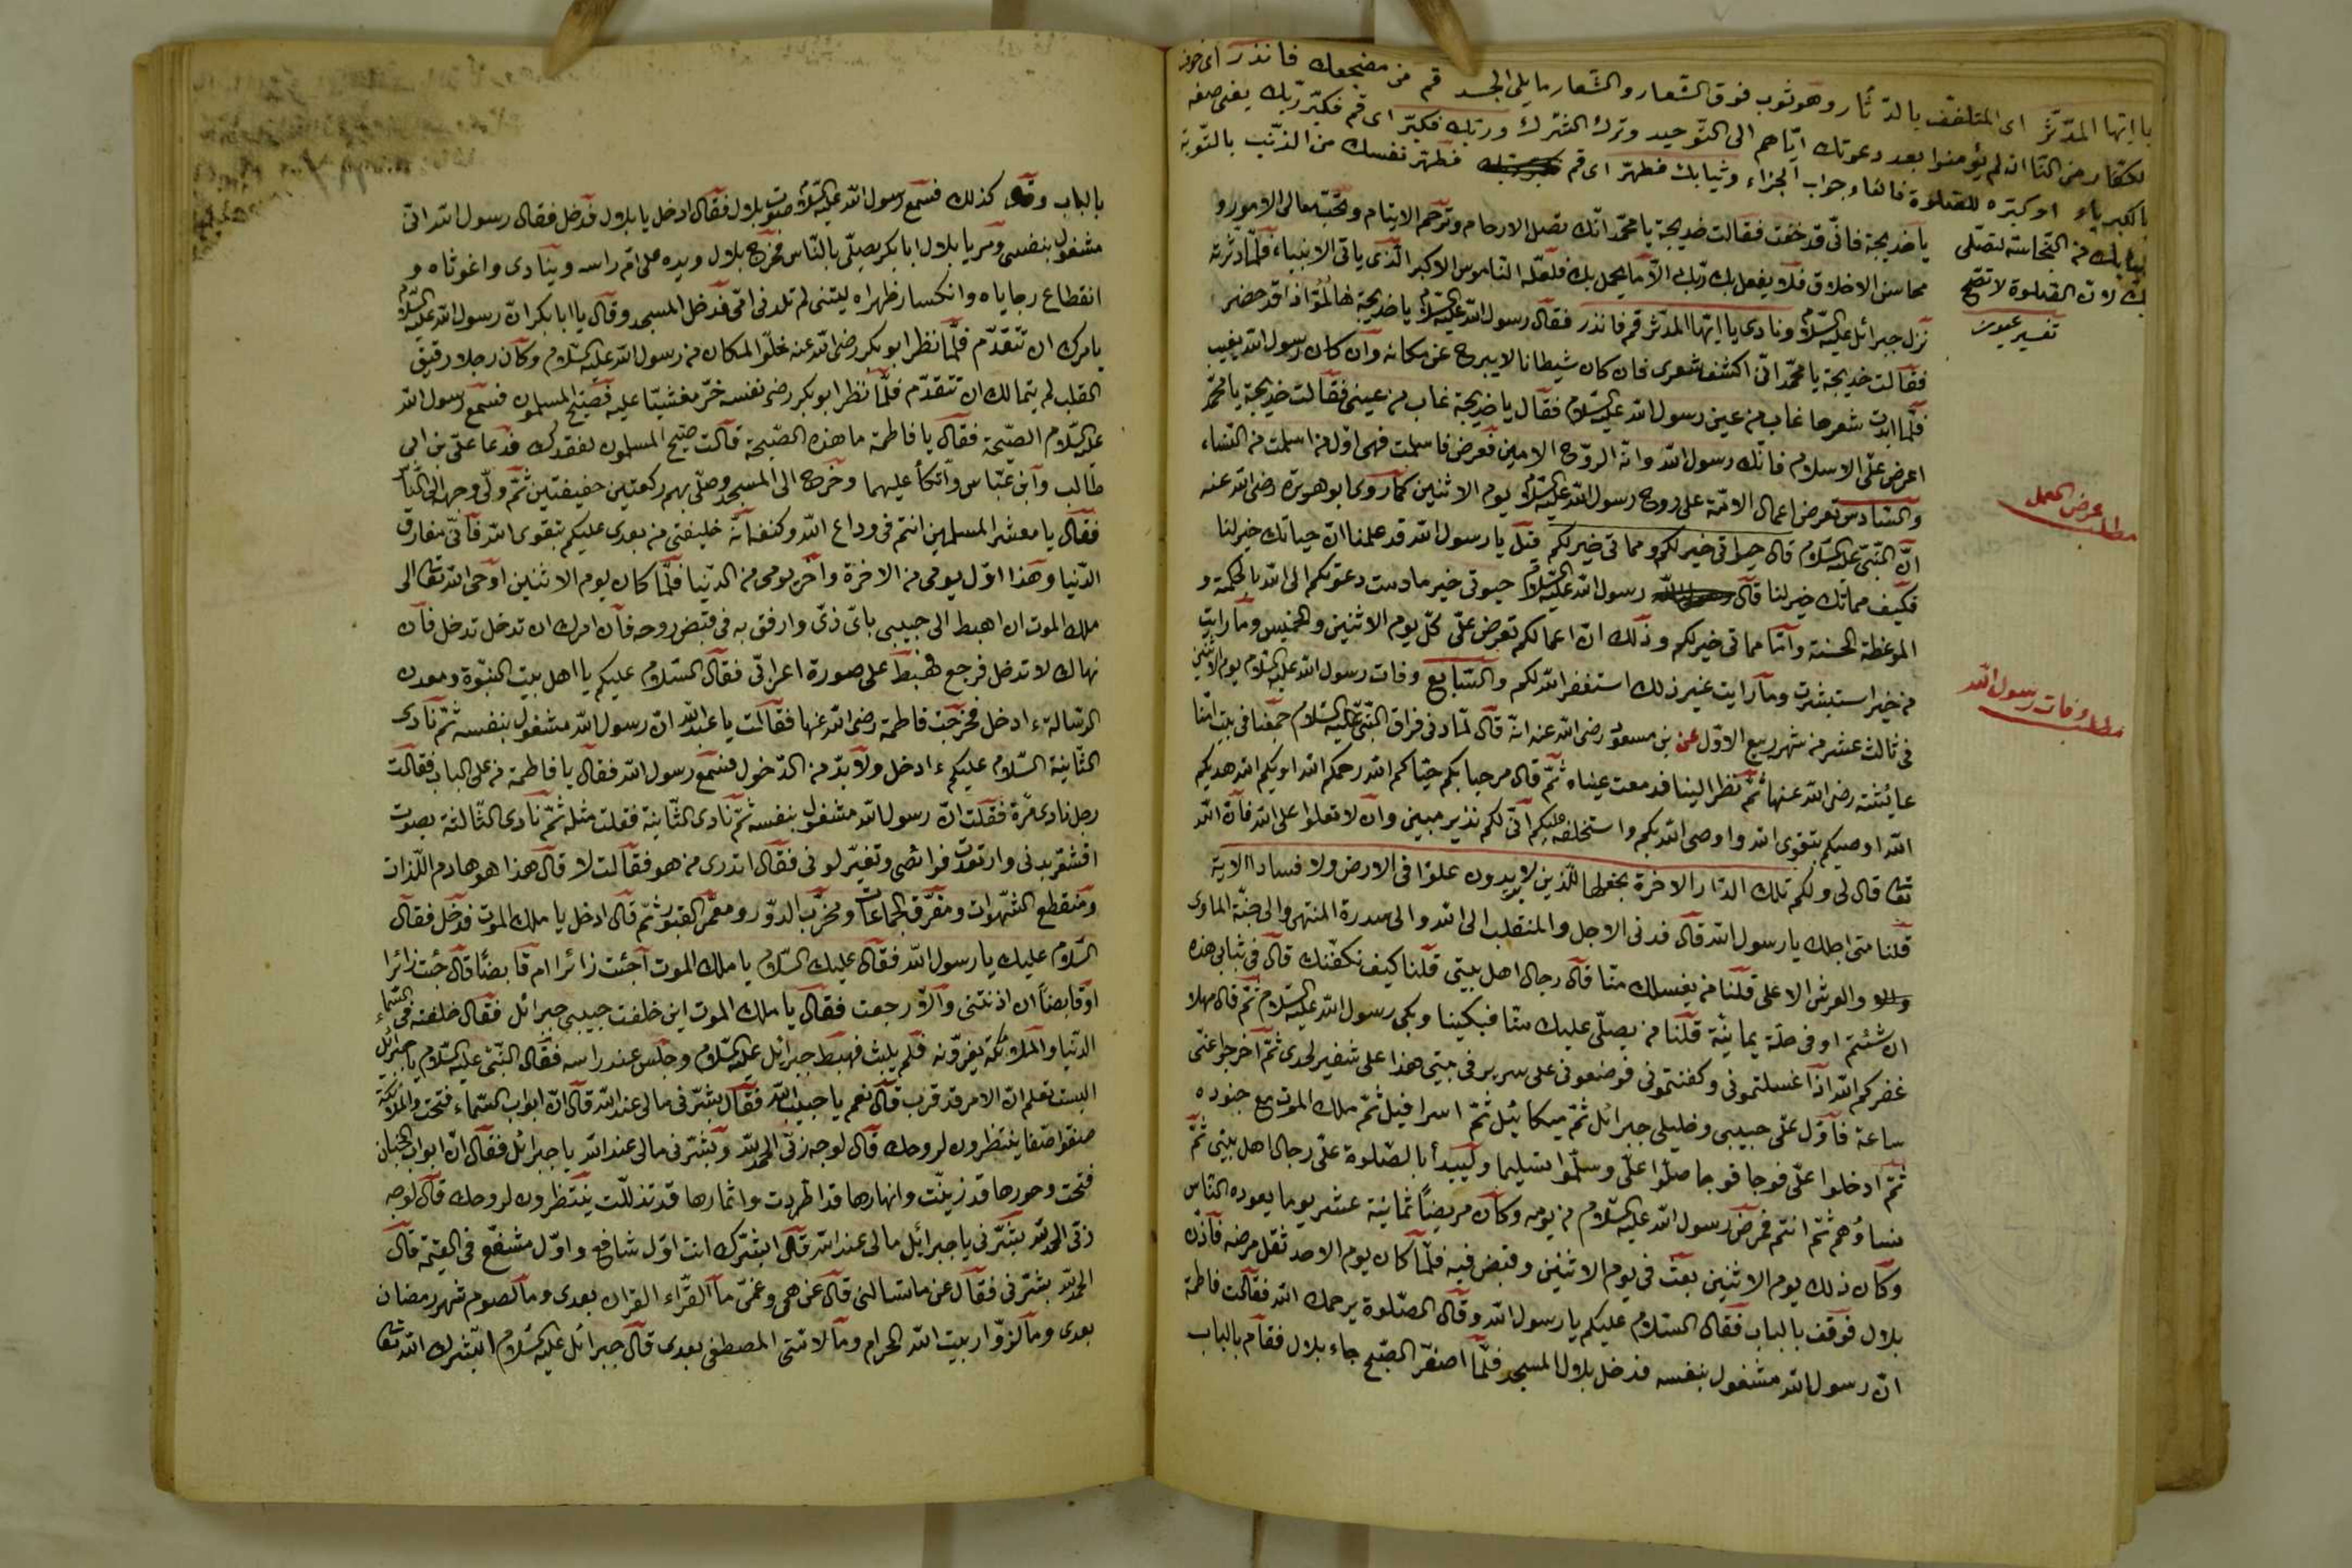 يا ايّها المدّثّر اى المتلفّف بالدّثار وهو ثوب فوق الشّعار والشّعار ما يلى الجسد قم من مضجعك فانذر اى خوف
لكفّار من النّار ان لم يؤمنوا بعد دعوتك ايّاهم الى التّوحيد وترك الشّرك وربّك فكبّر اى قم فكبّر ربّك يعنى صفه
بالكبرياء او كبّره للصّلوة فالفاء جواب الجزاء وثيابك فطهّر اى قم فطهّر نفسك من الذّنب بالتّوبة
ثيابك من النّجاسة لتصلّى
بك لانّ الصّلوة لا تصحّ
تفسير عيون
يا خديجة فانّى قد خفت فقالت خديجة يا محمّد انّك تصل الارحام وترحم الايتام وتحبّ معالى الامور و
محاسن الاخلاق فلا يفعل بك ربّك الّا ما يجمل بك فلعلّه النّاموس الاكبر الّذى ياتى الانبياء فلمّا دثرته
نزل جبرائل عليه السّلام ونادى يا ايّها المدّثر قم فانذر فقال رسول اللّه عليه السّلام يا خديجة قد حضر
فقالت خديجة يا محمّد انّى اكشف شعرى فان كان شيطانا لا يبرح عن مكانه وان كان رسول اللّه يغيب
فلمّا ابدت شعرها غاب من عين رسول اللّه عليه السّلام فقال يا خديجة غاب من عينى فقالت خديجة يا محمّد
اعرض علىّ الاسلام فانّك رسول اللّه وانّه الرّوح الامين فعرض فاسلمت فهى اوّل من اسلمت من النّساء
والسّادس تعرض اعمال الامّة على روح رسول اللّه عليه السّلام يوم الاثنين كما روى ابو هريرة رضى اللّه عنه
مطلب عرض العمل
انّ النّبىّ عليه السّلام قال حيوتى خير لكم ومماتى خير لكم قيل يا رسول اللّه قد علمنا انّ حياتك خير لنا
فكيف مماتك خير لنا قال رسول اللّه عليه السّلام حيوتى خير ما دمت دعوتكم الى اللّه بالحكمة و
الموعظة الحسنة وامّا مماتى خير لكم وذلك انّ اعمالكم تعرض علىّ كلّ يوم الاثنين والخميس وما رايت
من خير استبشرت وما رايت غير ذلك استغفر اللّه لكم والسّابع وفات رسول اللّه عليه السّلام يوم الاثنين
مطلب وفات رسول اللّه
فى ثالث عشر من شهر ربيع الاوّل عن بن مسعود رضى اللّه عنه انّه قال لمّا دنى فراق النّبىّ عليه السّلام جمعنا فى بيت امّنا
عايشة رضى اللّه عنها ثمّ نظر الينا فدمعت عيناه ثمّ قال مرحبا بكم حيّاكم اللّه رحمكم اللّه اويكم اللّه هديكم
اللّه اوصيكم بتقوى اللّه واوصى اللّه بكم واستخلفه عليكم انّى لكم نذير مبين وان لا تعلوا على اللّه فانّ اللّه
تعا قال لى ولكم تلك الدّار الاخرة نجعلها للّذين لا يريدون علوّا فى الارض ولا فسادا الاية
قلنا متى اجلك يا رسول اللّه قال قد دنى الاجل والمنقلب الى اللّه والى سدرة المنتهى والى جنّة الماوى
والعرش الاعلى قلنا من يغسلك منّا قال رجال اهل بيتى قلنا كيف نكفّنك قال فى ثيابى هذه
ان شئتم او فى حلّة يمانيّة قلنا من يصلّى عليك منّا فبكينا وبكى رسول اللّه عليه السّلام ثمّ قال مهلا
غفركم اللّه اذا غسلتمونى وكفنتمونى فوضعونى على سرير فى بيتى هذا على شفير لحدى ثمّ اخرجوا عنّى
ساعة فاوّل علىّ حبيبى وخليلى جبرائل ثمّ ميكائيل ثمّ اسرافيل ثمّ ملك الموت مع جنوده
ثمّ ادخلوا علىّ فوجا فوجا صلّوا علىّ وسلّموا تسليما وليبدأ بالصّلوة علىّ رجال اهل بيتى ثمّ
نساؤهم ثمّ انتم فمرض رسول اللّه عليه السّلام من يومه وكان مريضاً ثمانية عشر يوما يعوده النّاس
وكان ذلك يوم الاثنين بعث فى يوم الاثنين وقبض فيه فلمّا كان يوم الاحد ثقل مرضه فاذّن
بلال فوقف بالباب فقال السّلام عليكم يا رسول اللّه وقال الصّلوة يرحمك اللّه فقالت فاطمة
انّ رسول اللّه مشغول بنفسه فدخل بلال المسجد فلمّا اصفرّ الصّبح جاء بلال فقام بالباب
بالباب وقال كذلك فسمع رسول اللّه عليه السّلام صوت بلال فقال ادخل يا بلال فدخل فقال رسول اللّه انّى
مشغول بنفسى ومر يا بلال ابا بكر يصلّى بالنّاس فخرج بلال ويده على امّ راسه وينادى واغوثاه و
انقطاع رجاياه وانكسار ظهراه ليتنى لم تلدنى امّى فدخل المسجد وقال يا ابا بكر انّ رسول اللّه عليه السّلام
يامرك ان تتقدّم فلمّا نظر ابو بكر رضى اللّه عنه خلوّ المكان من رسول اللّه عليه السّلام وكان رجلا رقيق
القلب لم يتمالك ان تتقدّم فلمّا نظر ابو بكر رض نفسه خرّ مغشيّا عليه فصيّح المسلمون فسمع رسول اللّه
عليه السّلام الصّيحة فقال يا فاطمة ما هذه الصّيحة قالت صيّح المسلمون لفقدك فدعا علىّ بن ابى
طالب وابن عبّاس واتّكأ عليهما وخرج الى المسجد وصلّى بهم ركعتين خفيفتين ثمّ ولّى وجهه الى النّاس
فقال يا معشر المسلمين انتم فى وداع اللّه وكنفه انّه خليفتى من بعدى عليكم بتقوى اللّه فانّى مفارق
الدّنيا وهذا اوّل يومى من الاخرة وآخر يومى من الدّنيا فلمّا كان يوم الاثنين اوحى اللّه تعا الى
ملك الموت ان اهبط الى حبيبى باىّ ذىّ وارفق به فى قبض روحه فان امرك ان تدخل تدخل فان
نهاك لا تدخل فرجع فهبط على صورة اعرابىّ فقال السّلام عليكم يا اهل بيت النّبوّة ومعدن
الرّسالة ءادخل فخرجت فاطمة رضى اللّه عنها فقالت يا عبد اللّه انّ رسول اللّه مشغول بنفسه ثمّ نادى
الثّانية السّلام عليكم ءادخل ولا بدّ من الدّخول فسمع رسول اللّه فقال يا فاطمة من على الباب فقالت
رجل نادى مرّة فقلت انّ رسول اللّه مشغول بنفسه ثمّ نادى الثّانية فقلت مثله ثمّ نادى الثّالثة بصوت
اقشعر بدنى وارتعدت فرائصى وتغيّر لونى فقال اتدرى من هو فقالت لا قال هذا هو هادم اللّذات
ومنقطع الشّهوات ومفرّق الجماعات ومخرّب الدوّر ومعمّر القبور ثمّ قال ادخل يا ملك الموت فدخل فقال
السّلام عليك يا رسول اللّه فقال عليك السّلام يا ملك الموت آجئت زائرا ام قابضا قال جئت زائرا
اوقابضاً ان اذنتنى والّا رجعت فقال يا ملك الموت اين خلفت حبيبى جبرائل فقال خلفته فى السّماء
الدّنيا والملائكة يعزّونه فلم يلبث فهبط جبرائل عليه السّلام وجلس عند راسه فقال النّبىّ عليه السّلام يا جبرائل
الست تعلم انّ الامر قد قرب قال نعم يا حبيب اللّه فقال بشّرنى مالى عند اللّه قال انّ ابواب السّماء فتحت والملائكة
صفوا صفّا ينتظرون لروحك قال لوجه ربّى الحمد للّه وبشّرنى مالى عند اللّه يا جبرائل فقال انّ ابواب الجنان
فتحت وحورها قد زينّت وانهارها قد اطردت واثمارها قد تذلّلت ينتظرون لروحك قال لوجه
ربّى الحمد للّه بشّرنى يا جبرائل مالى عند اللّه قال ابشّرك انت اوّل شافع واوّل مشفّع فى القيمة قال
الحمد للّه بشّرنى فقال عن ما تسالنى قال عن همى وغمّى ما القرّاء القران بعدى وما لصوم شهر رمضان
بعدى وما لزوّار بيت اللّه الحرام وما لامّتى المصطفى بعدى قال جبرائل عليه السّلام ابشّرك اللّه تعا